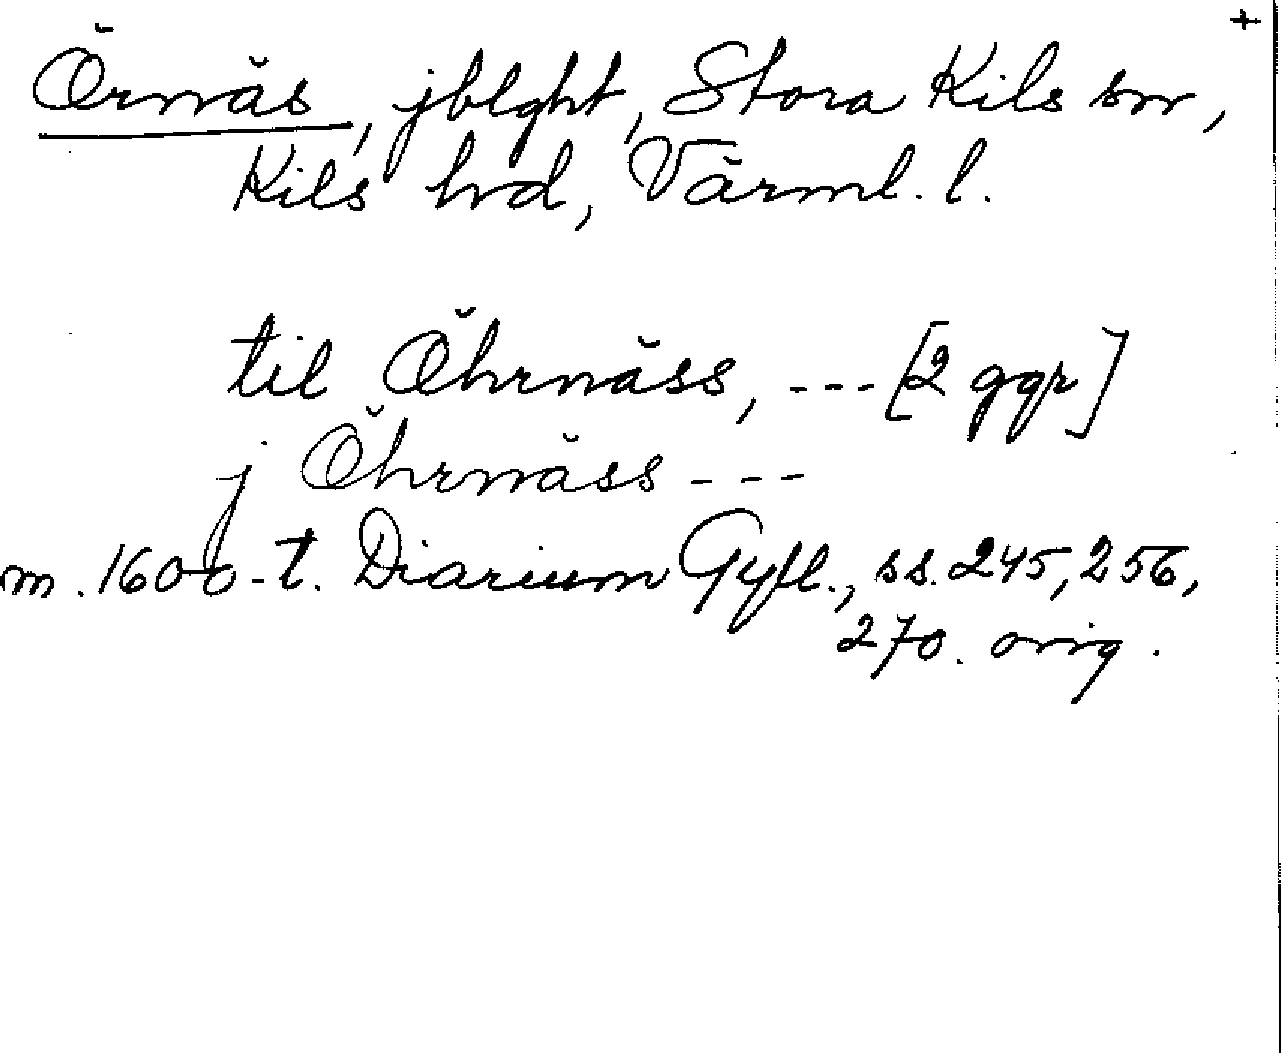 +
Örnäs, jblght, Stora Kils sn,
Kils hd, Värml. l.
til Öhrnäss, --- [2 ggr]
j Öhrnäss ---
m. 1600-t. Diarium Gyll., ss. 245, 256,
270. orig.